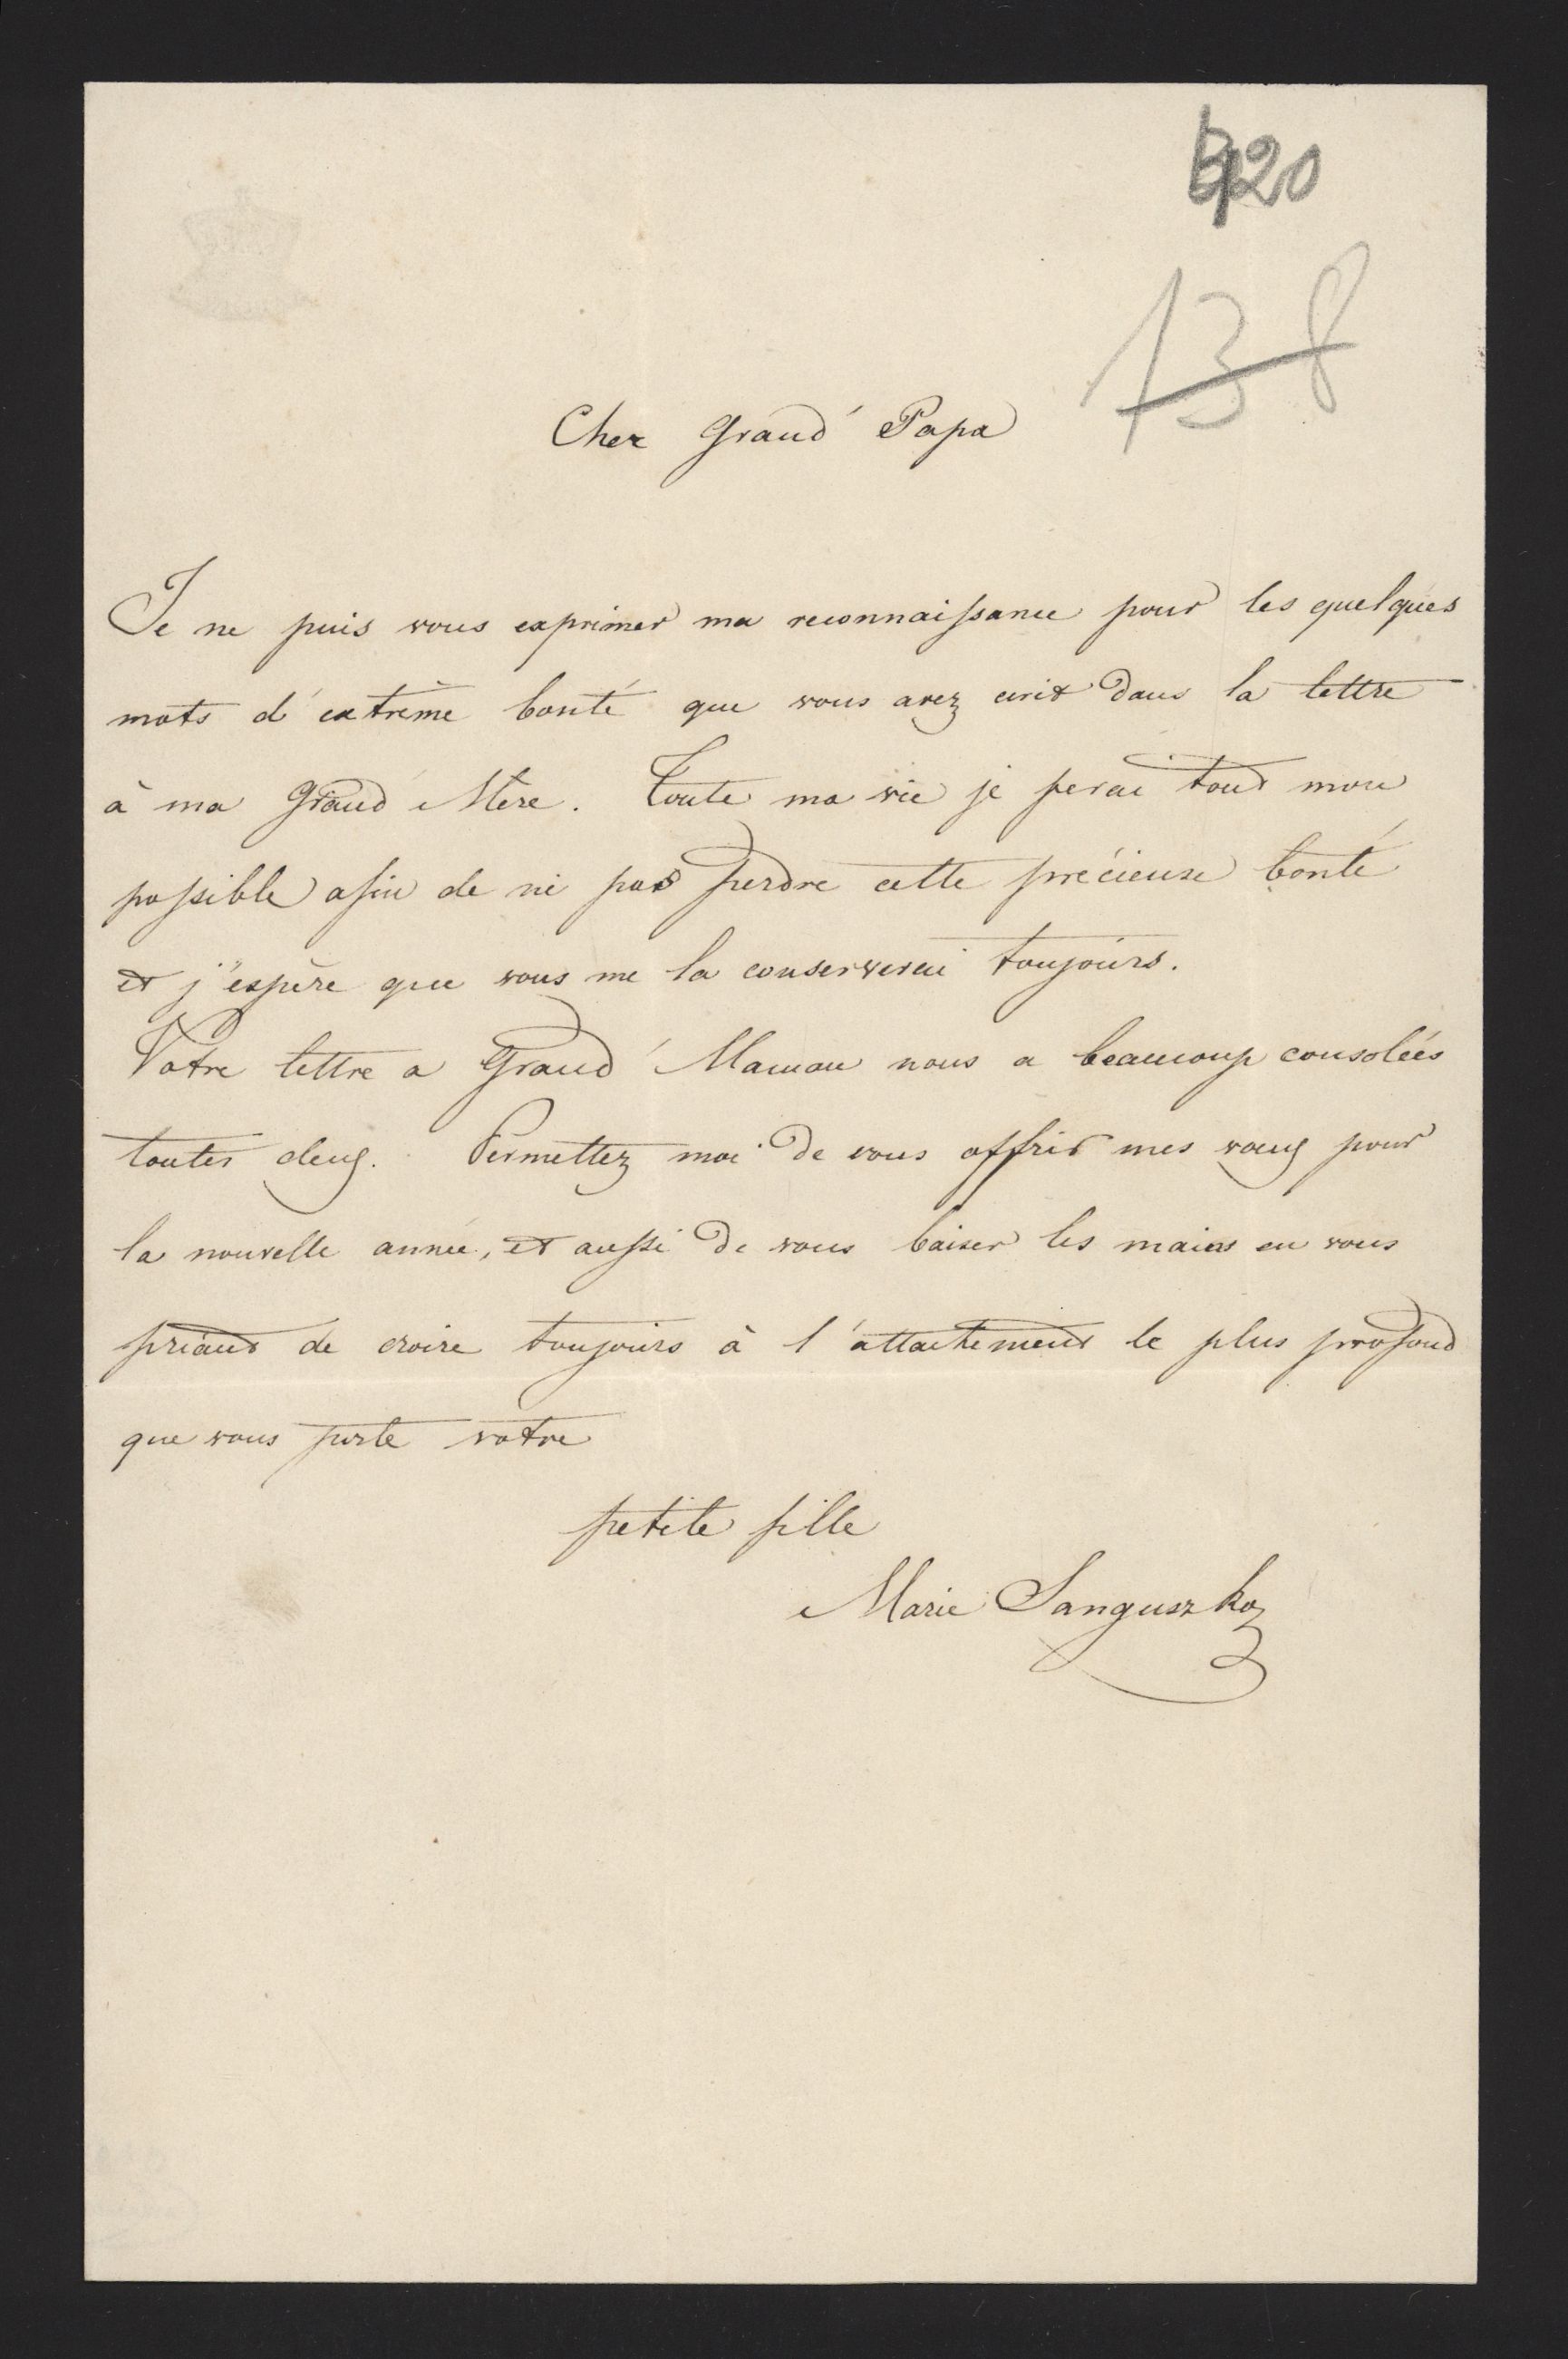 20
138
Cher Grand' Papa
Je ne puis vous exprimer ma reconnaissance pour les quelques
mots d'extrème bonté que vous avez ecrit dans la lettre
à ma Grand Mère. Toute ma vie je ferai tout mon
possible afin de ne pas perdre cette précieuse bonté
et j'espère que vous me la conserverai toujours.
Votre lettre a Grand' Maman nous a beaucoup consolées
toutes deux. Permettez moi de vous offrir mes vœux pour
la nouvelle année, et aussi de vous baiser les mains en vous
priant de croire toujours à l'attachement le plus profond
que vous porte votre
petite fille
Marie Sanguszko